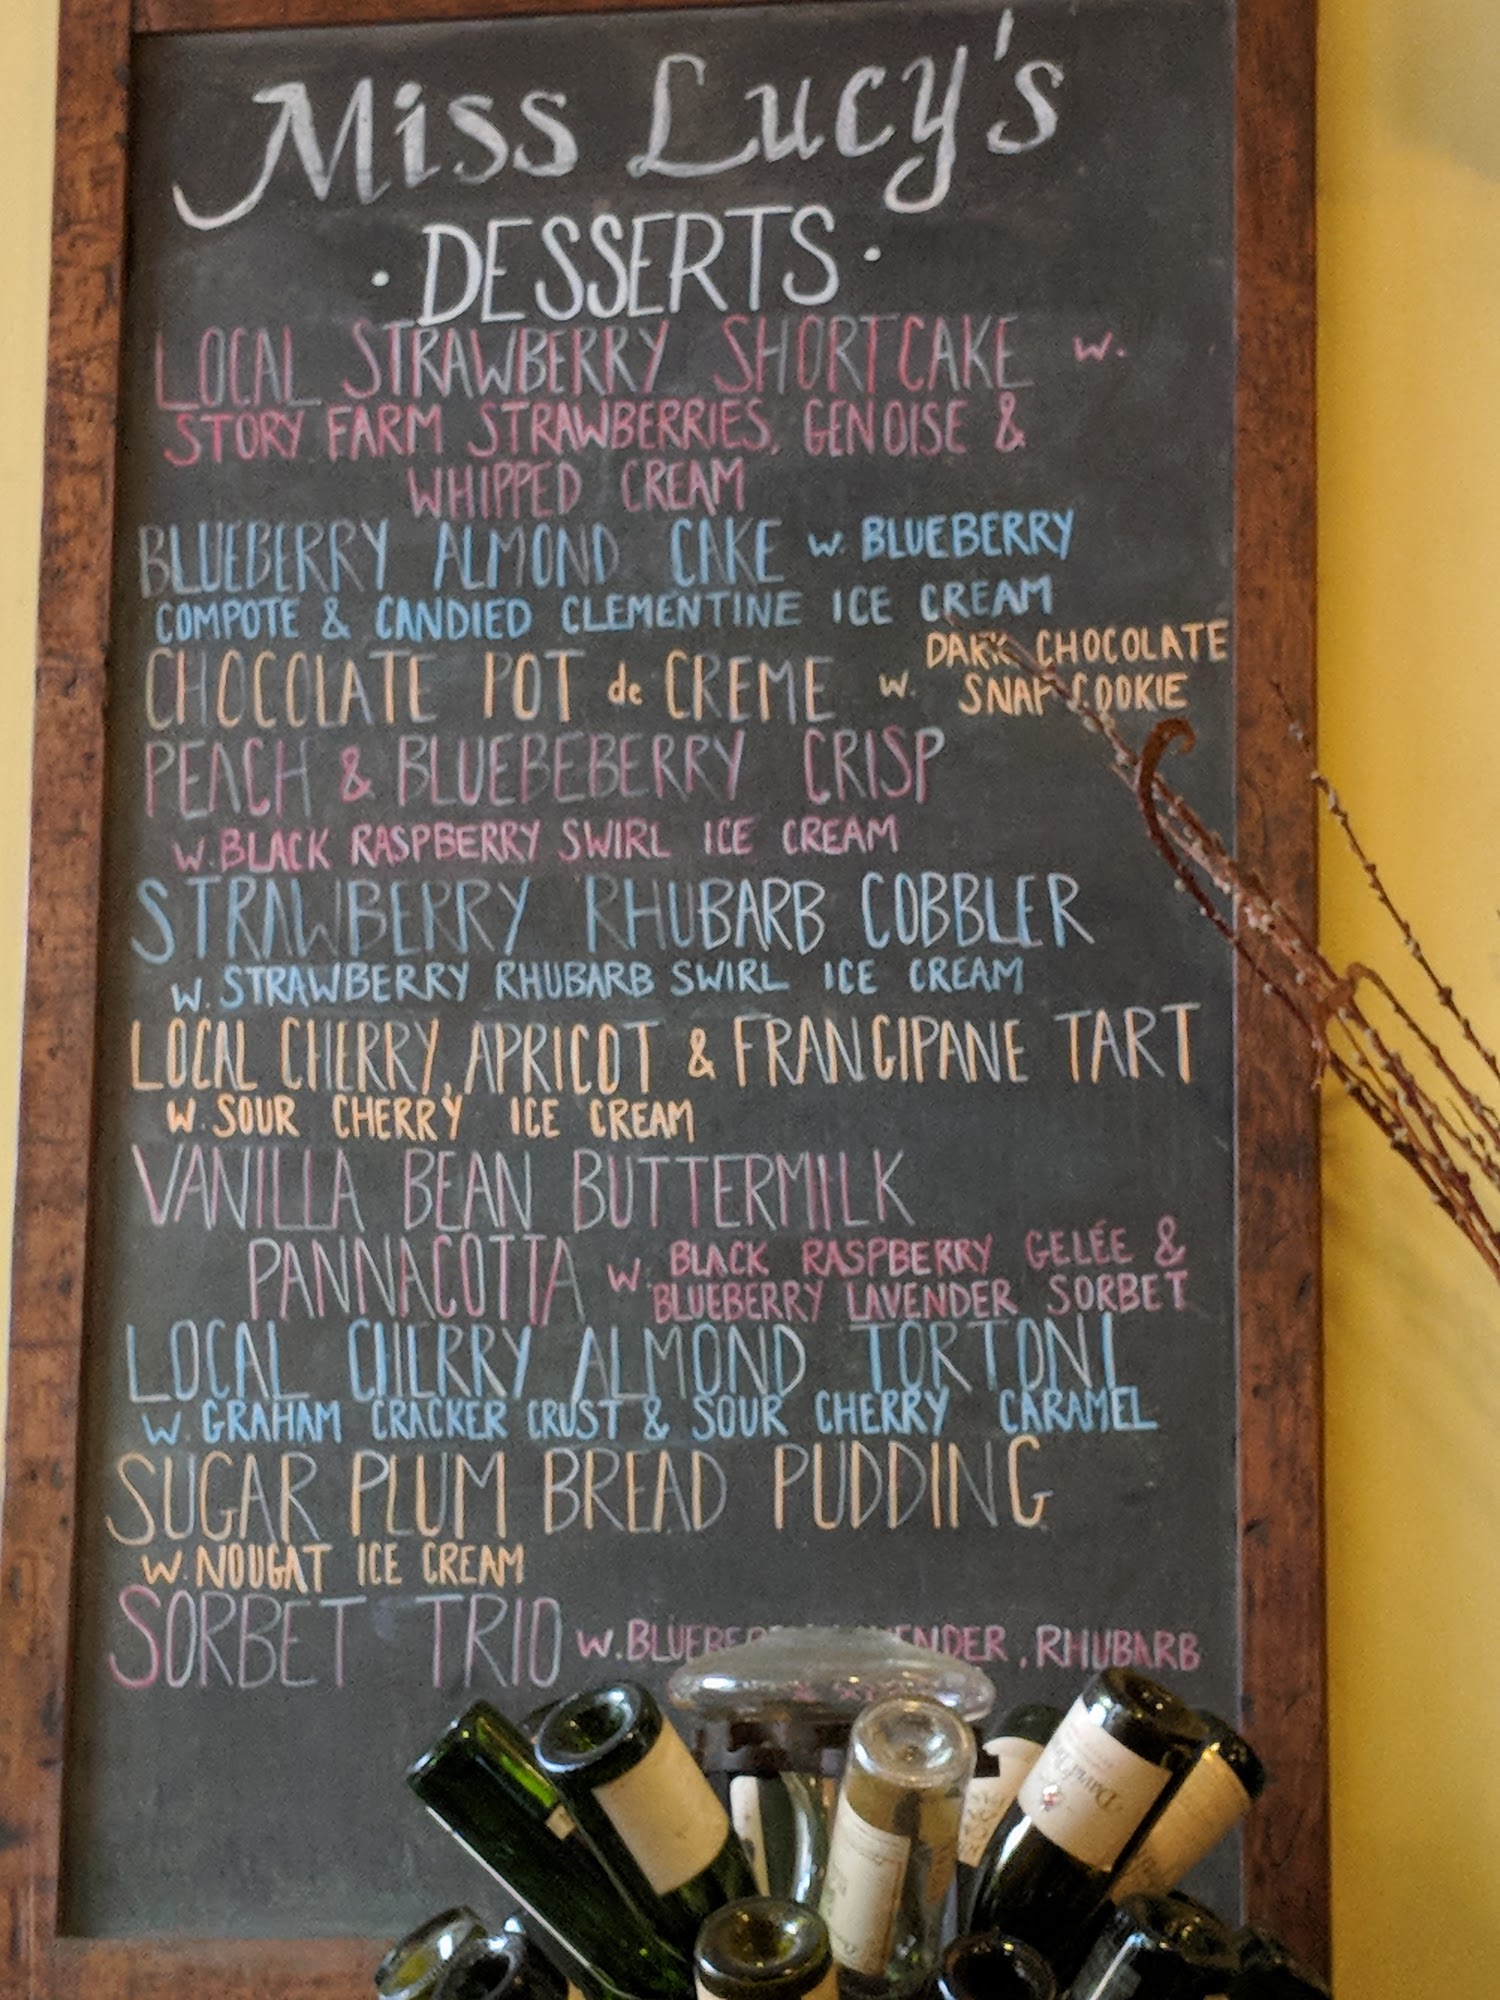 Miss Lucy's
· DESSERTS ·
LOCAL STRAWBERRY SHORTCAKE w.
STORY FARM STRAWBERRIES, GENOISE &
WHIPPED CREAM
BLUEBERRY ALMOND CAKE w. BLUEBERRY
COMPOTE & CANDIED CLEMENTINE ICE CREAM
CHOCOLATE POT de CREME w. DARK CHOCOLATE
SNAP COOKIE
PEACH & BLUEBEBERRY CRISP
W. BLACK RASPBERRY SWIRL ICE CREAM
STRAWBERRY RHUBARB COBBLER
W. STRAWBERRY RHUBARB SWIRL ICE CREAM
LOCAL CHERRY, APRICOT & FRANGIPANE TART
W. SOUR CHERRY ICE CREAM
VANILLA BEAN BUTTERMILK
PANNACOTTA W. BLACK RASPBERRY GELÉE &
BLUEBERRY LAVENDER SORBET
LOCAL CHERRY ALMOND TORTONI
W. GRAHAM CRACKER CRUST & SOUR CHERRY CARAMEL
SUGAR PLUM BREAD PUDDING
W. NOUGAT ICE CREAM
SORBET TRIO W. RHUBARB